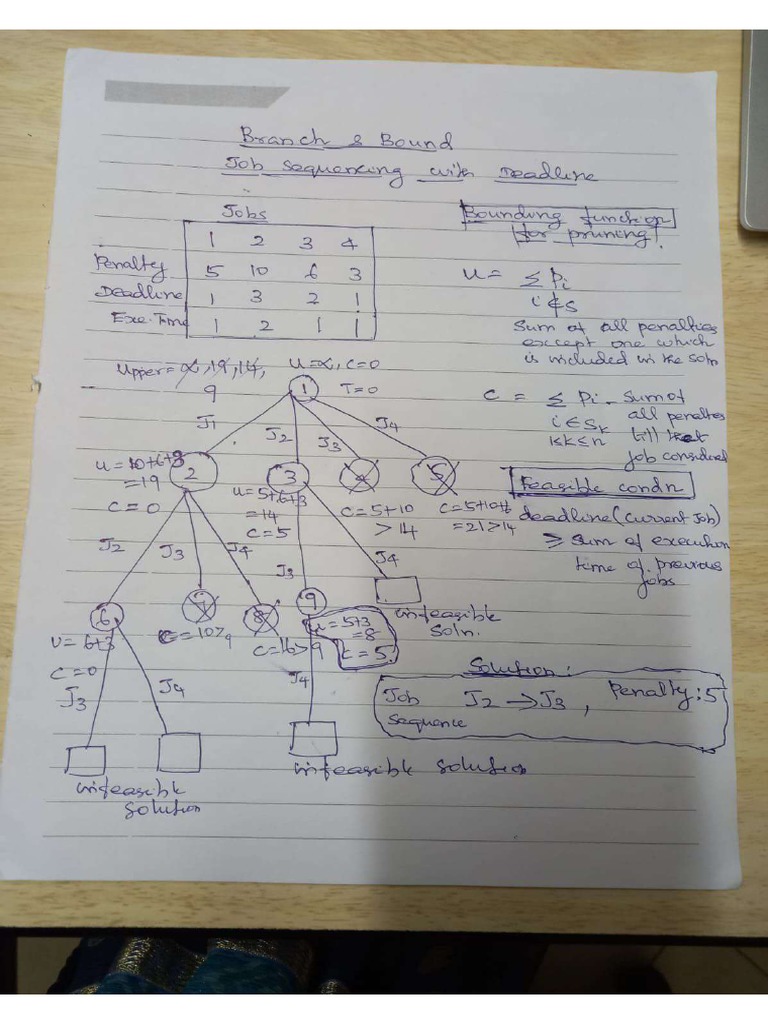 Branch & Bound
Job Sequencing with Deadline
Jobs
1 2 3 4
Penalty 5 10 6 3
Deadline 1 3 2 1
Exe.Time 1 2 1 1
Bounding function
for pruning.
u = Σ Pi
i∉S
Sum of all penalties
except one which
is included in the soln
C = Σ Pi - Sum of
i∈Sk all penalties
1≤k≤n till that
job considered
Feasible condn
deadline (current Job)
≥ sum of execution
time of previous
jobs
Upper = ∝, 19, 14,
9
u=∝, C=0
1 T=0
J1 J2 J3 J4
2 3 4 5
u=10+6+3
=19
C=0
u=5+6+3
=14
C=5
C=5+10
>14
C=5+10+6
=21>14
J2 J3 J4
J3 J4
6 7 8 9
infeasible
Soln.
U=6+3
C=0
C=10>9
C=16>9
u=5+3
=8
C=5
J3 J4
J4
infeasible
Solution
infeasible solution
Solution:
Job J2 → J3, Penalty: 5
sequence